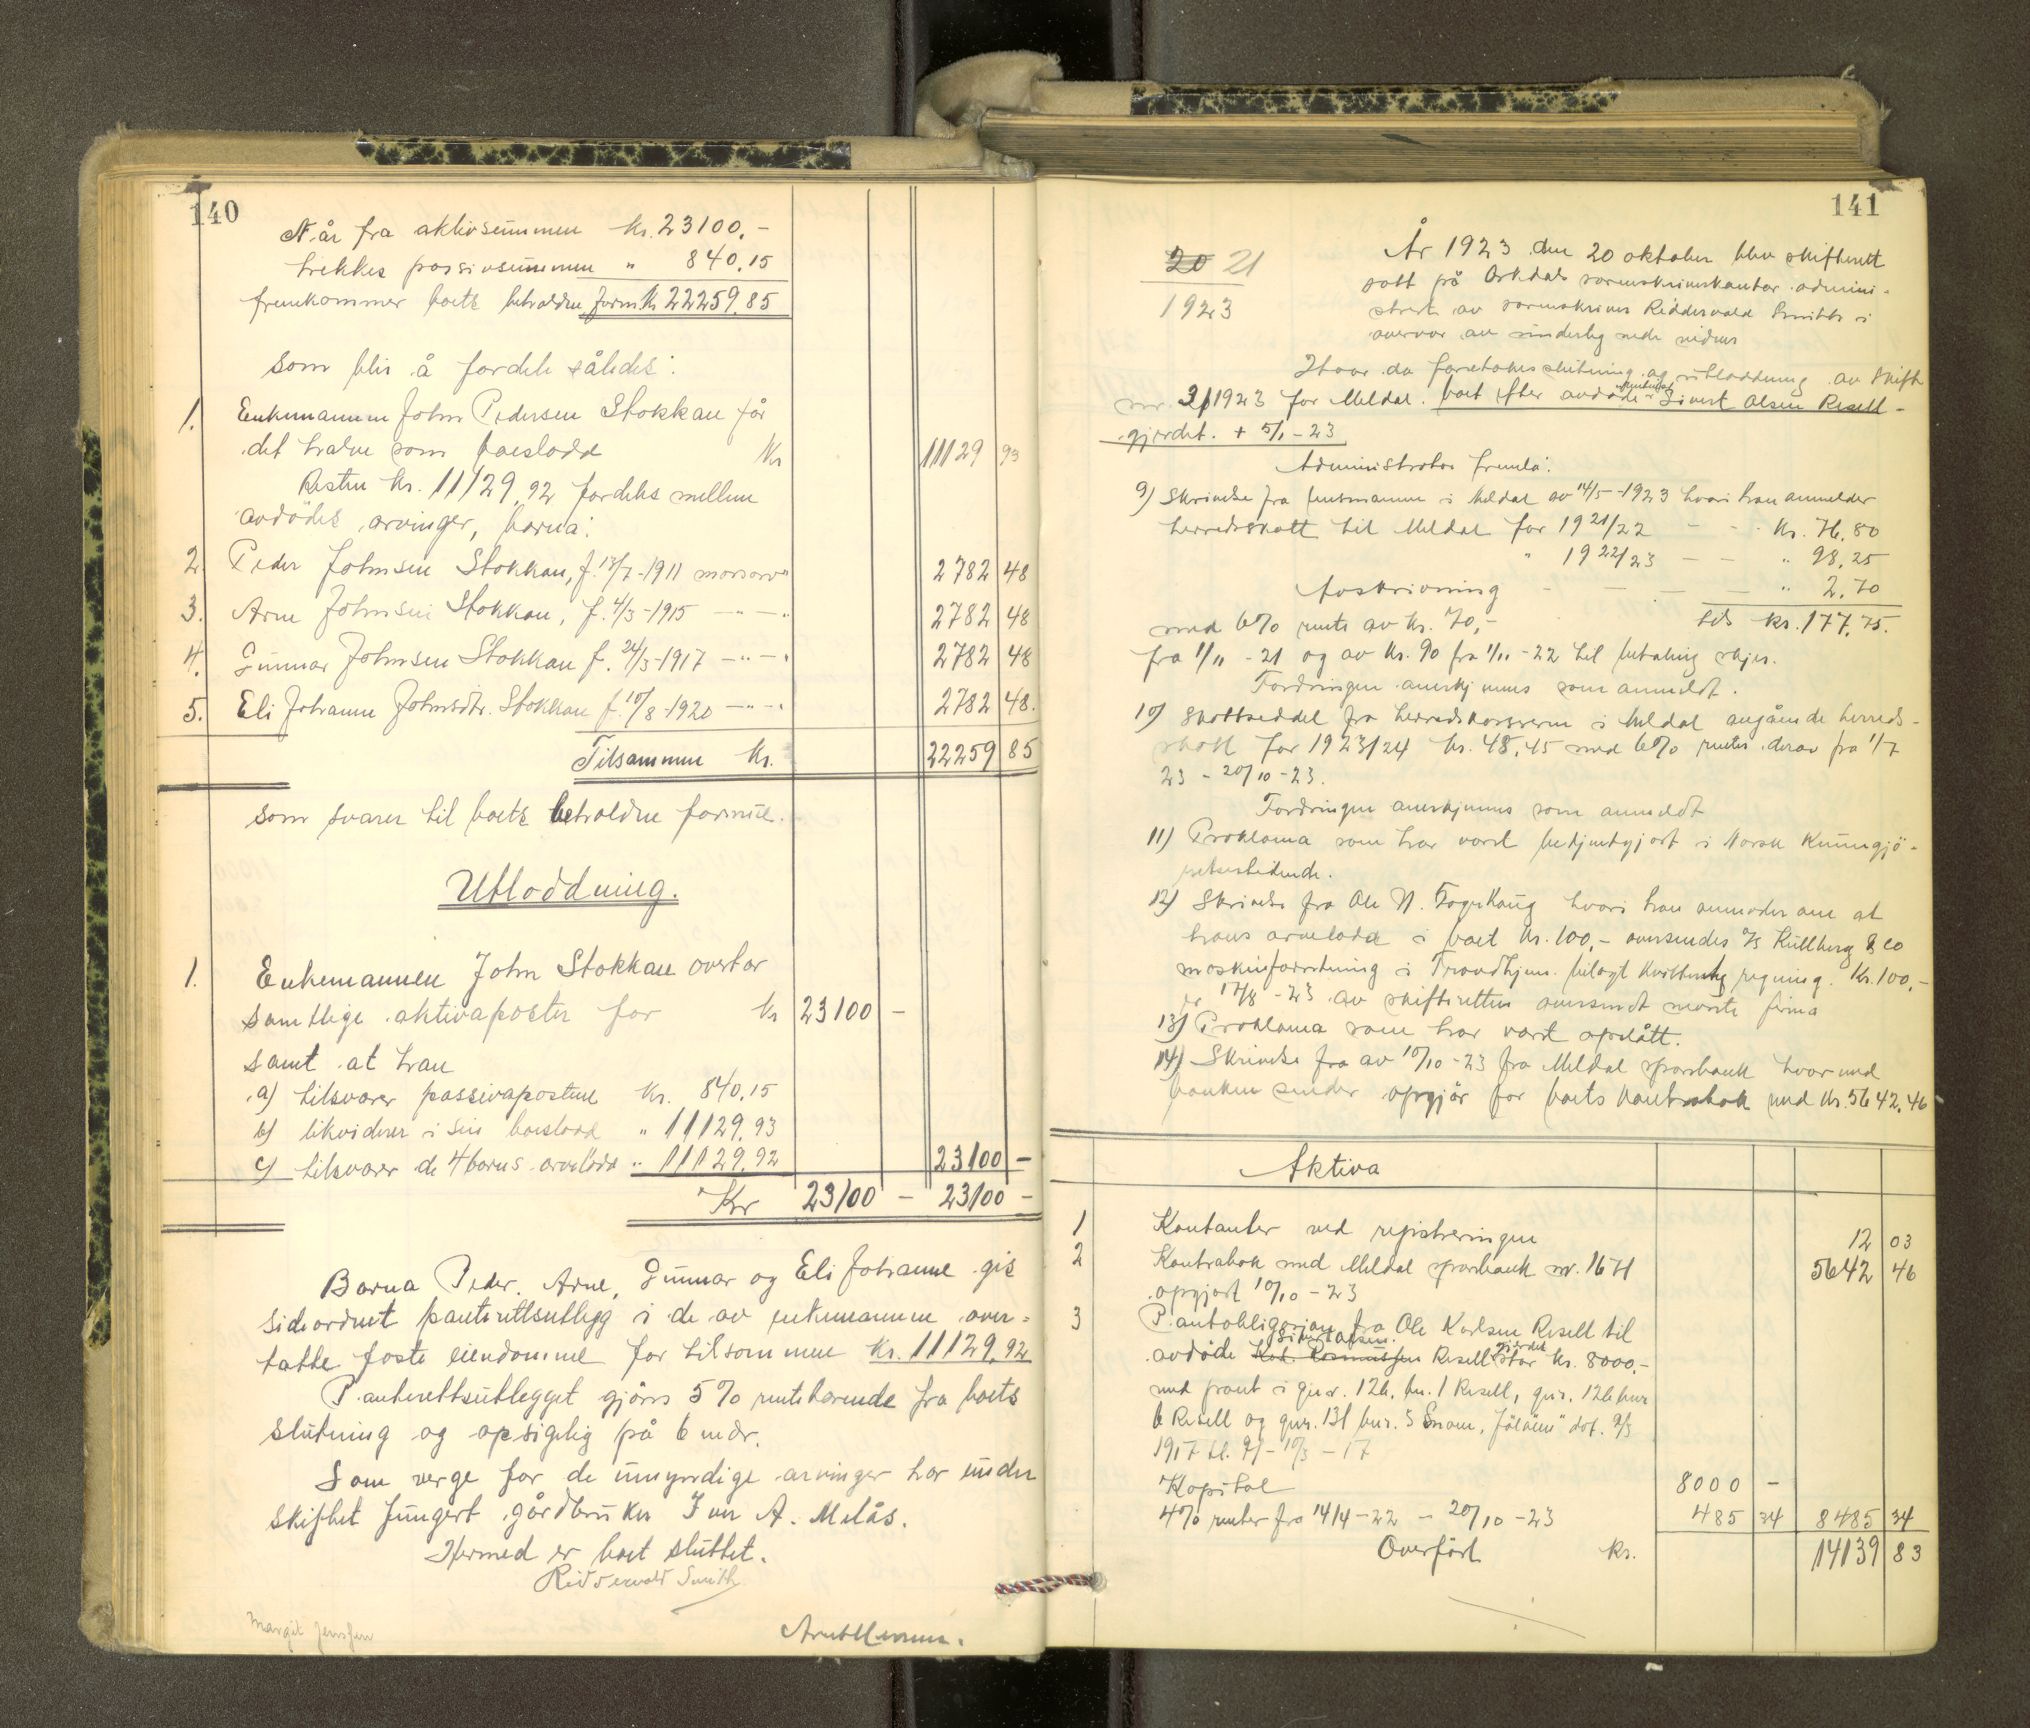 140
Når fra aktivsummen kr. 23100.-
trekkes passivsummen " 840.15
fremkommer boets beholdne form. kr 22259.85
som blir å fordele således:
1. Enkemannen John Pedersen Stokkan får
det halve som boeslodd Kr 11129 93
Resten kr. 11129,92 fordeles mellem
avdödes arvinger, barna:
2. Peder Johnsen Stokkan, f. 13/7-1911 morsarv " 2782 48
3. Arne Johnsen Stokkan, f. 4/3-1915 -"-" 2782 48
4. Gunnar Johnsen Stokkan f. 24/3-1917 -"-" 2782 48
5. Eli Johanne Johnsdtr. Stokkan f. 10/8-1920 -"-" 2782 48.
Tilsammen Kr. 22259 85
som svarer til boets beholdne formue.
Utloddning.
1. Enkemannen John Stokkan overtar
samtlige aktivaposter for kr 23100 -
samt at han
a) tilsvarer passivapostene Kr. 840.15
b) likviderer i sin boeslodd " 11129.93
c) tilsvarer de 4 barns arvelodd " 11129.92 23100 -
Kr 23100 - 23100 -
Barna Peder, Arne, Gunnar og Eli Johanne gis
sideordnet panterettsutlegg i de av enkemannen over-
tatte faste eiendomme for tilsammen kr. 11129.92
Panterettsutlegget gjöres 5% rentebærende fra boets
slutning og opsigelig på 6 mdr.
Som verge for de umyndige arvinger har under
skiftet fungert gårdbruker Iver A. Melås.
Hermed er boet sluttet.
Ridderwold Smith
Margit Jenssen
141
20 21
1923
År 1923 den 20 oktober blev skifterett
satt på Orkdals sorenskriverkontor admini-
strert av sorenskriver Ridderwold Smith i
overvær av underteg nede vidner
Hvor da foretokes slutning og utloddning av skifte
nr. 21/1923 for Meldal. boet efter avdøde Sivert Olsen Resell-
gjerdet. + 5/1-23
Administrator fremla:
9) Skrivelse fra lensmannen i Meldal av 14/5-1923 hvori han anmelder
herredsskatt til Meldal for 1921/22 - - Kr. 76.80
" 1922/23 - - " 98.25
Avskrivning - - - - " 2.70
tils kr. 177.75.
med 6% rente av kr. 70,-
fra 1/11-21 og av kr. 90 fra 1/11-22 til betaling skjer.
Fordringen anerkjennes som anmeldt.
10) Skattseddel fra herredskassereren i Meldal angående herreds-
skatt for 1923/24 kr. 48.45 med 6% renter derav fra 1/7
23 - 20/10-23.
Fordringen anerkjennes som anmeldt
11) Proklama som har vært bekjentgjort i Norsk Kunngjö-
relsestidende.
12) Skrivelse fra Ole N. hvori han anmoder om at
hans arvelodd i boet kr. 100,- oversendes A/S Kullberg & co
maskinforretning i Trondhjem. bilagt kvittert regning. Kr. 100,-
er 17/8-23 av skifteretten oversendt nevnte firma
13) Proklama som har vært opslått.
14) Skrivelse fra av 10/10-23 fra Meldal sparebank hvormed
banken sender opgjör for boets kontrabok med Kr. 5642.46
Aktiva
1 Kontanter ved registreringen 12 03
2 Kontrabok med Meldal sparebank nr. 1671 5642 46
opgjort 10/10-23
3 Pantobligasjon fra Ole Karlsen Resell til
Sivert Olsen
avdöde Resell gjerdet stor kr. 8000,-
med pant i gnr. 126, bnr. 1 Resell, gnr. 126 bnr
6 Resell og gnr. 131 bnr. 5 dat. 9/3
1917 tl. 9/-10/3-17
Kapital 8000 -
4% renter fra 14/4-22 - 20/10-23 485 34 8485 34
Overført kr. 14139 83